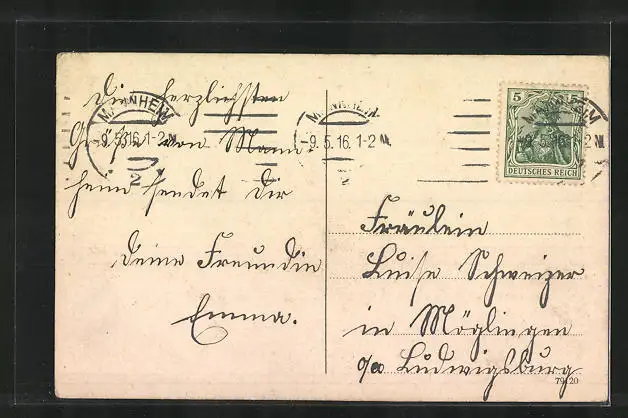 Die herzlichsten
Grüße von Mann-
heim sendet Dir
Deine Freundin
Emma.
MANNHEIM
-9.5.16.1-2 N.
2
MANNHEIM
-9.5.16.1-2 N.
2
5
DEUTSCHES REICH
Fräulein
Luise Schweizer
in Möglingen
o/a Ludwigsburg
79120